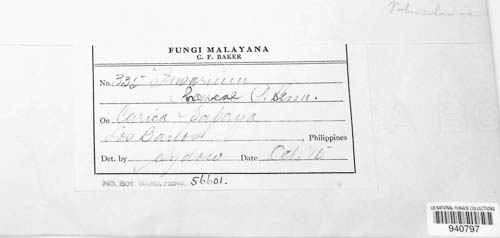 Tuberculariac
FUNGI MALAYANA
C. F. BAKER
No. 335 Fusarium
P. Henn.
On Carica Papaya
Los Baños Philippines
Det. by Sydow Date Oct. '15
NO. BOT. GARD. HERB. 56601.
US NATIONAL FUNGUS COLLECTIONS
940797